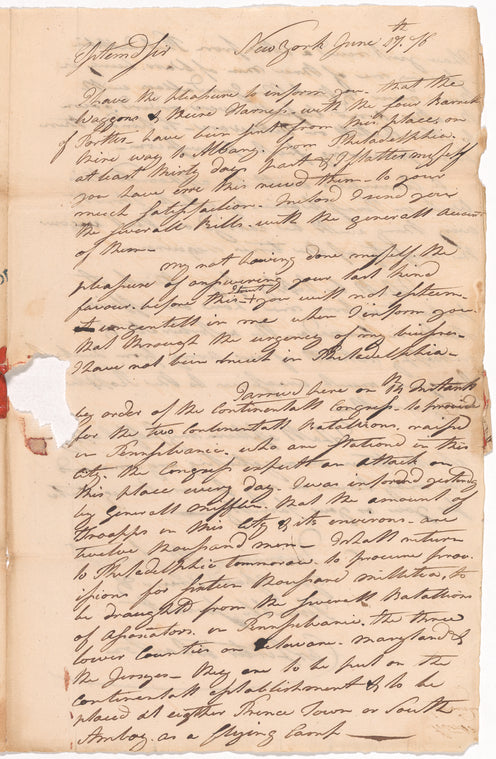 Esteemd Sir New York June 17th. 76
I have the pleasure to inform you that the
Waggons & theire Harness with the four
of Tortles have been sent from this place, on
theire way to Albany. from Philadelphia.
at least thirty days past & I flatter myself
you have ere this receved them to your
much satisfaction. Inclosd I send you
the severall Bills with the generall Account
of them
my not having done myself the
pleasure of answering your last kind
favour before this that you will not esteem
ungentell in me when I inform you
that through the urgency of my business
I have not been much in Philadelphia
I arrived here on the 14 Instant
by order of the Continentall Congress to provide
for the two Continentall Batallions. raised
in Pennsylvania. who are stationd in this
City. the Congress expects an attack on
this place every day. I was informd yesterday
by Generall Mifflin, that the amount of
Troopps in this City & its environs. are
twelve thousand men I shall return
to Philadelphia tomorrow. to procure prov.
isions for sixteen thousand millitia, to
be draughtd from the severall Batallions
of Asosators. in Pennsylvania. the three
lower Counties on Delaware. Maryland &
the Jerseys they are to be put on the
Continentall establishment & to be
placed at eigther Prince Town or South
Amboy as a flying Camp